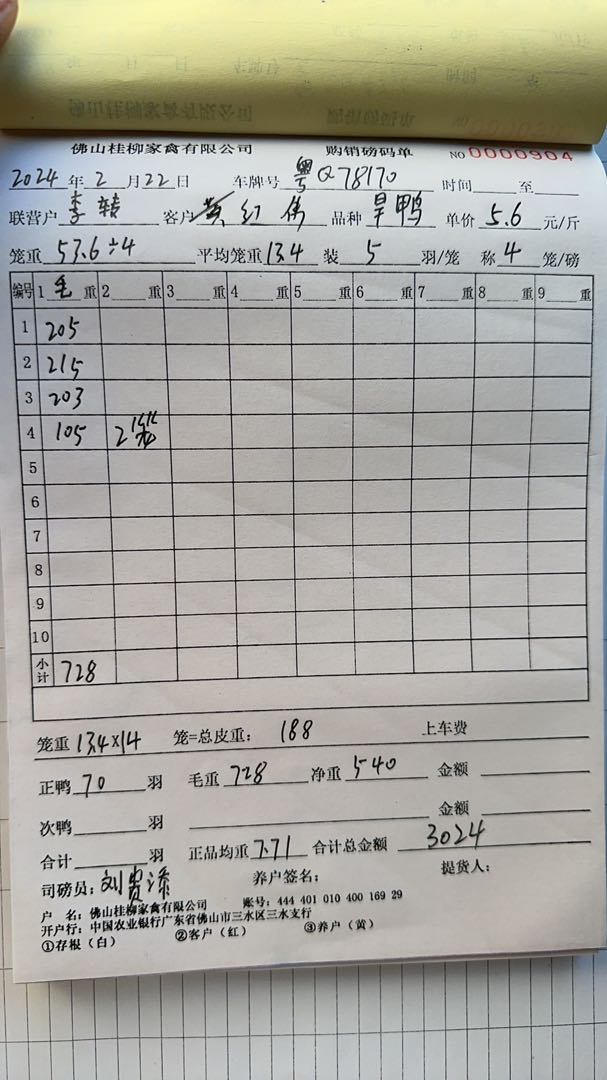 佛山桂柳家禽有限公司 购销磅码单 NO 0000904
2024 年 2 月 22 日 车牌号 粤Q78170 时间 至
联营户 李转 客户 红伟 品种 旱鸭 单价 5.6 元/斤
笼重 53.6÷4 平均笼重 13.4 装 5 羽/笼 称 4 笼/磅
编号 1 毛 重 2 重 3 重 4 重 5 重 6 重 7 重 8 重 9 重
1 205
2 215
3 203
4 105 2
5
6
7
8
9
10
小计 728
笼重 13.4×14 笼=总皮重: 188 上车费
正鸭 70 羽 毛重 728 净重 540 金额
次鸭 羽 金额
合计 羽 正品均重 7.71 合计总金额 3024
司磅员: 刘贵添 养户签名: 提货人:
户 名: 佛山桂柳家禽有限公司 账号: 444 401 010 400 169 29
开户行: 中国农业银行广东省佛山市三水区三水支行
①存根（白） ②客户（红） ③养户（黄）